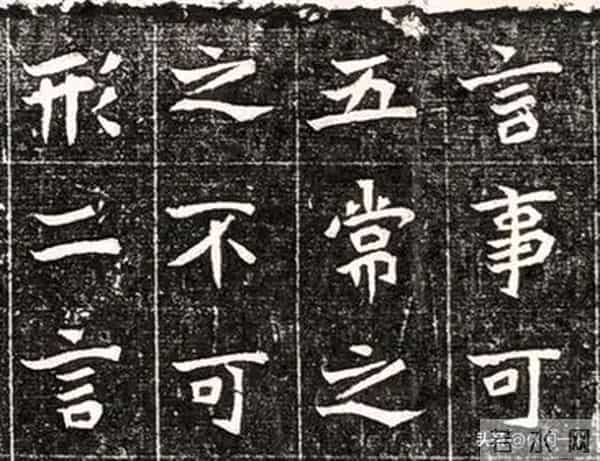 言事可
五常之
之不可
形二言
头条@
若水网